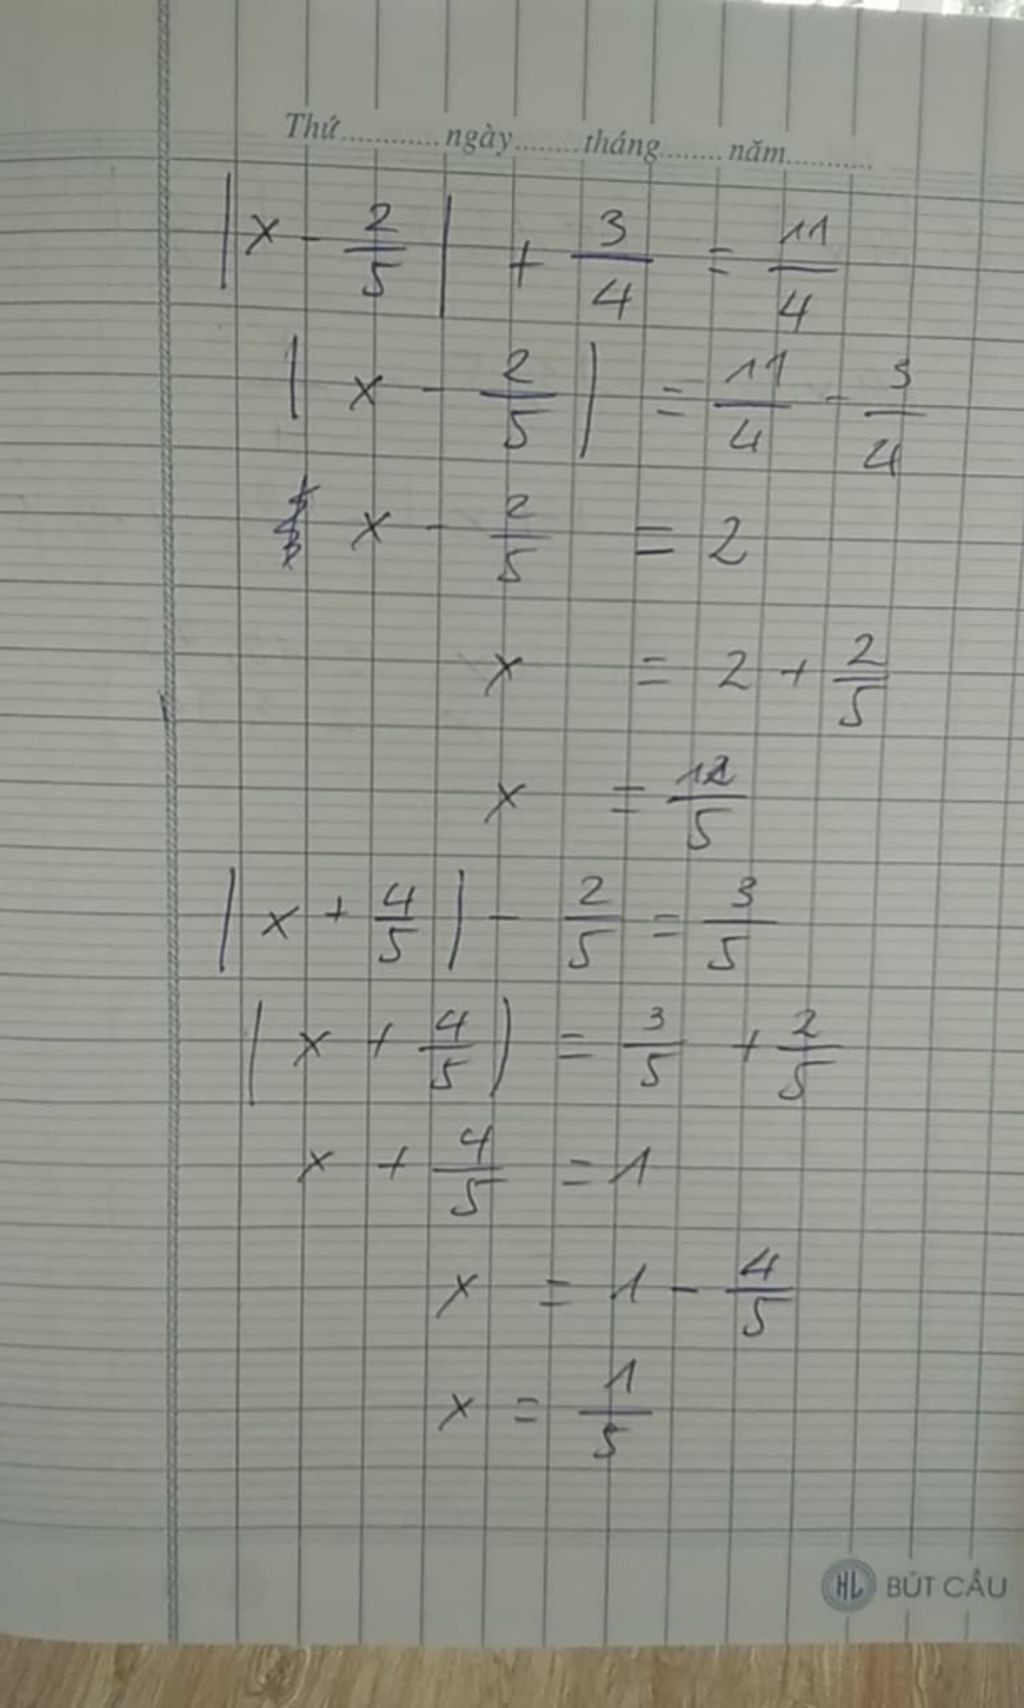 Thứ............ngày........tháng........năm...........
|x - 2/5| + 3/4 = 11/4
|x - 2/5| = 11/4 - 3/4
x - 2/5 = 2
x = 2 + 2/5
x = 12/5
|x + 4/5| - 2/5 = 3/5
|x + 4/5) = 3/5 + 2/5
x + 4/5 = 1
x = 1 - 4/5
x = 1/5
HL BÚT CẦU